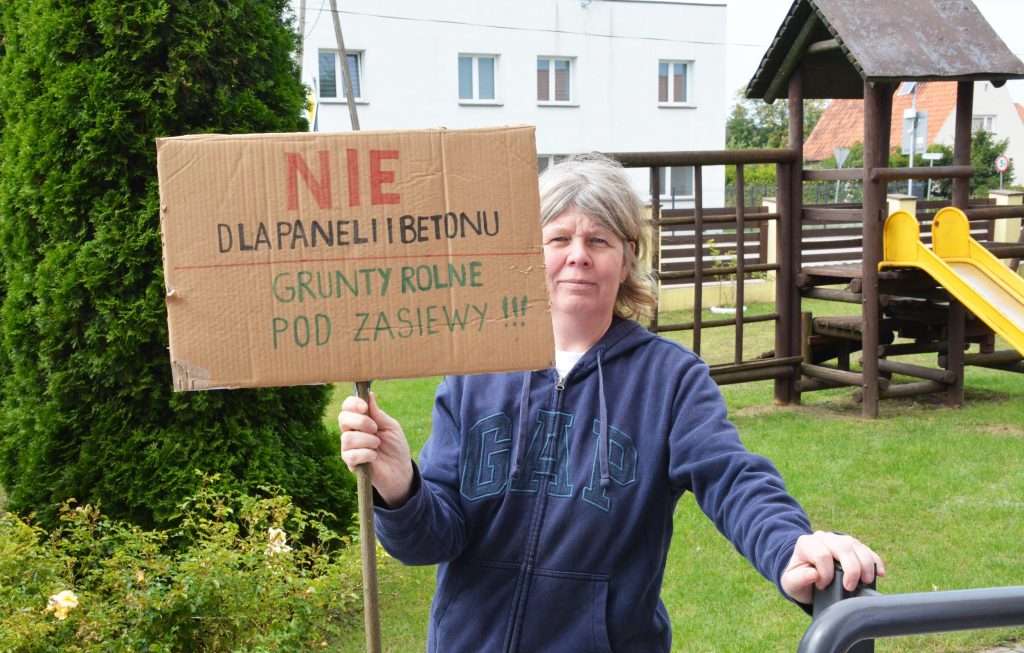 NIE
DLA PANELI I BETONU
GRUNTY ROLNE
POD ZASIEWY !!!
GAP